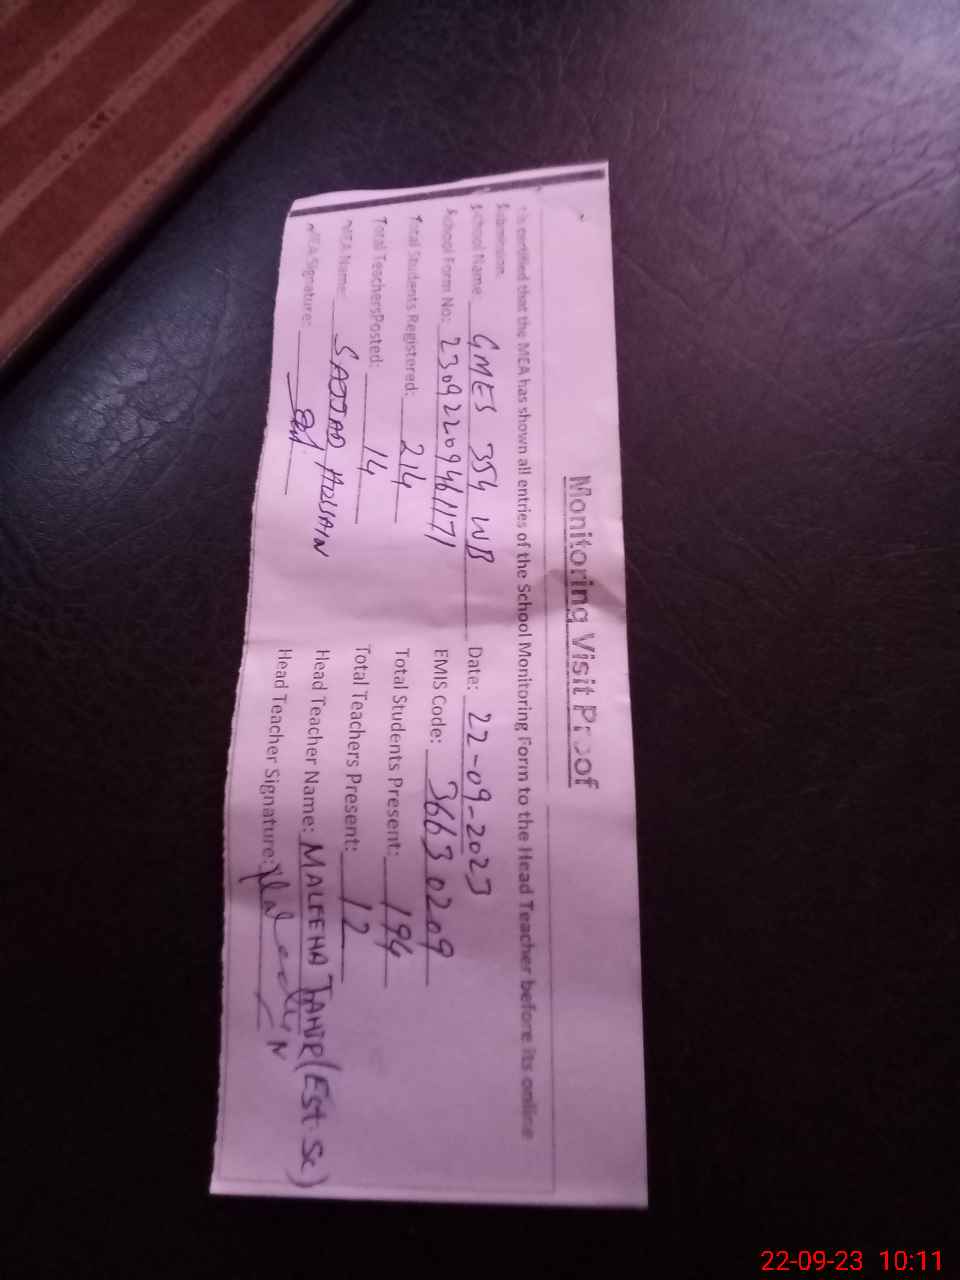 Monitoring Visit Proof
It is certified that the MEA has shown all entries of the School Monitoring Form to the Head Teacher before its online
Submission.
School Name GMES 354 WB Date: 22-09-2023
School Form No: 23092209461171 EMIS Code: 36630209
Total Students Registered: 214 Total Students Present: 194
Total TeachersPosted: 14 Total Teachers Present: 12
MEA Name: SAJJAD HUSSAIN Head Teacher Name: MALEEHA TAHIR (Est. Sc)
MEA Signature: Head Teacher Signature:
22-09-23 10:11